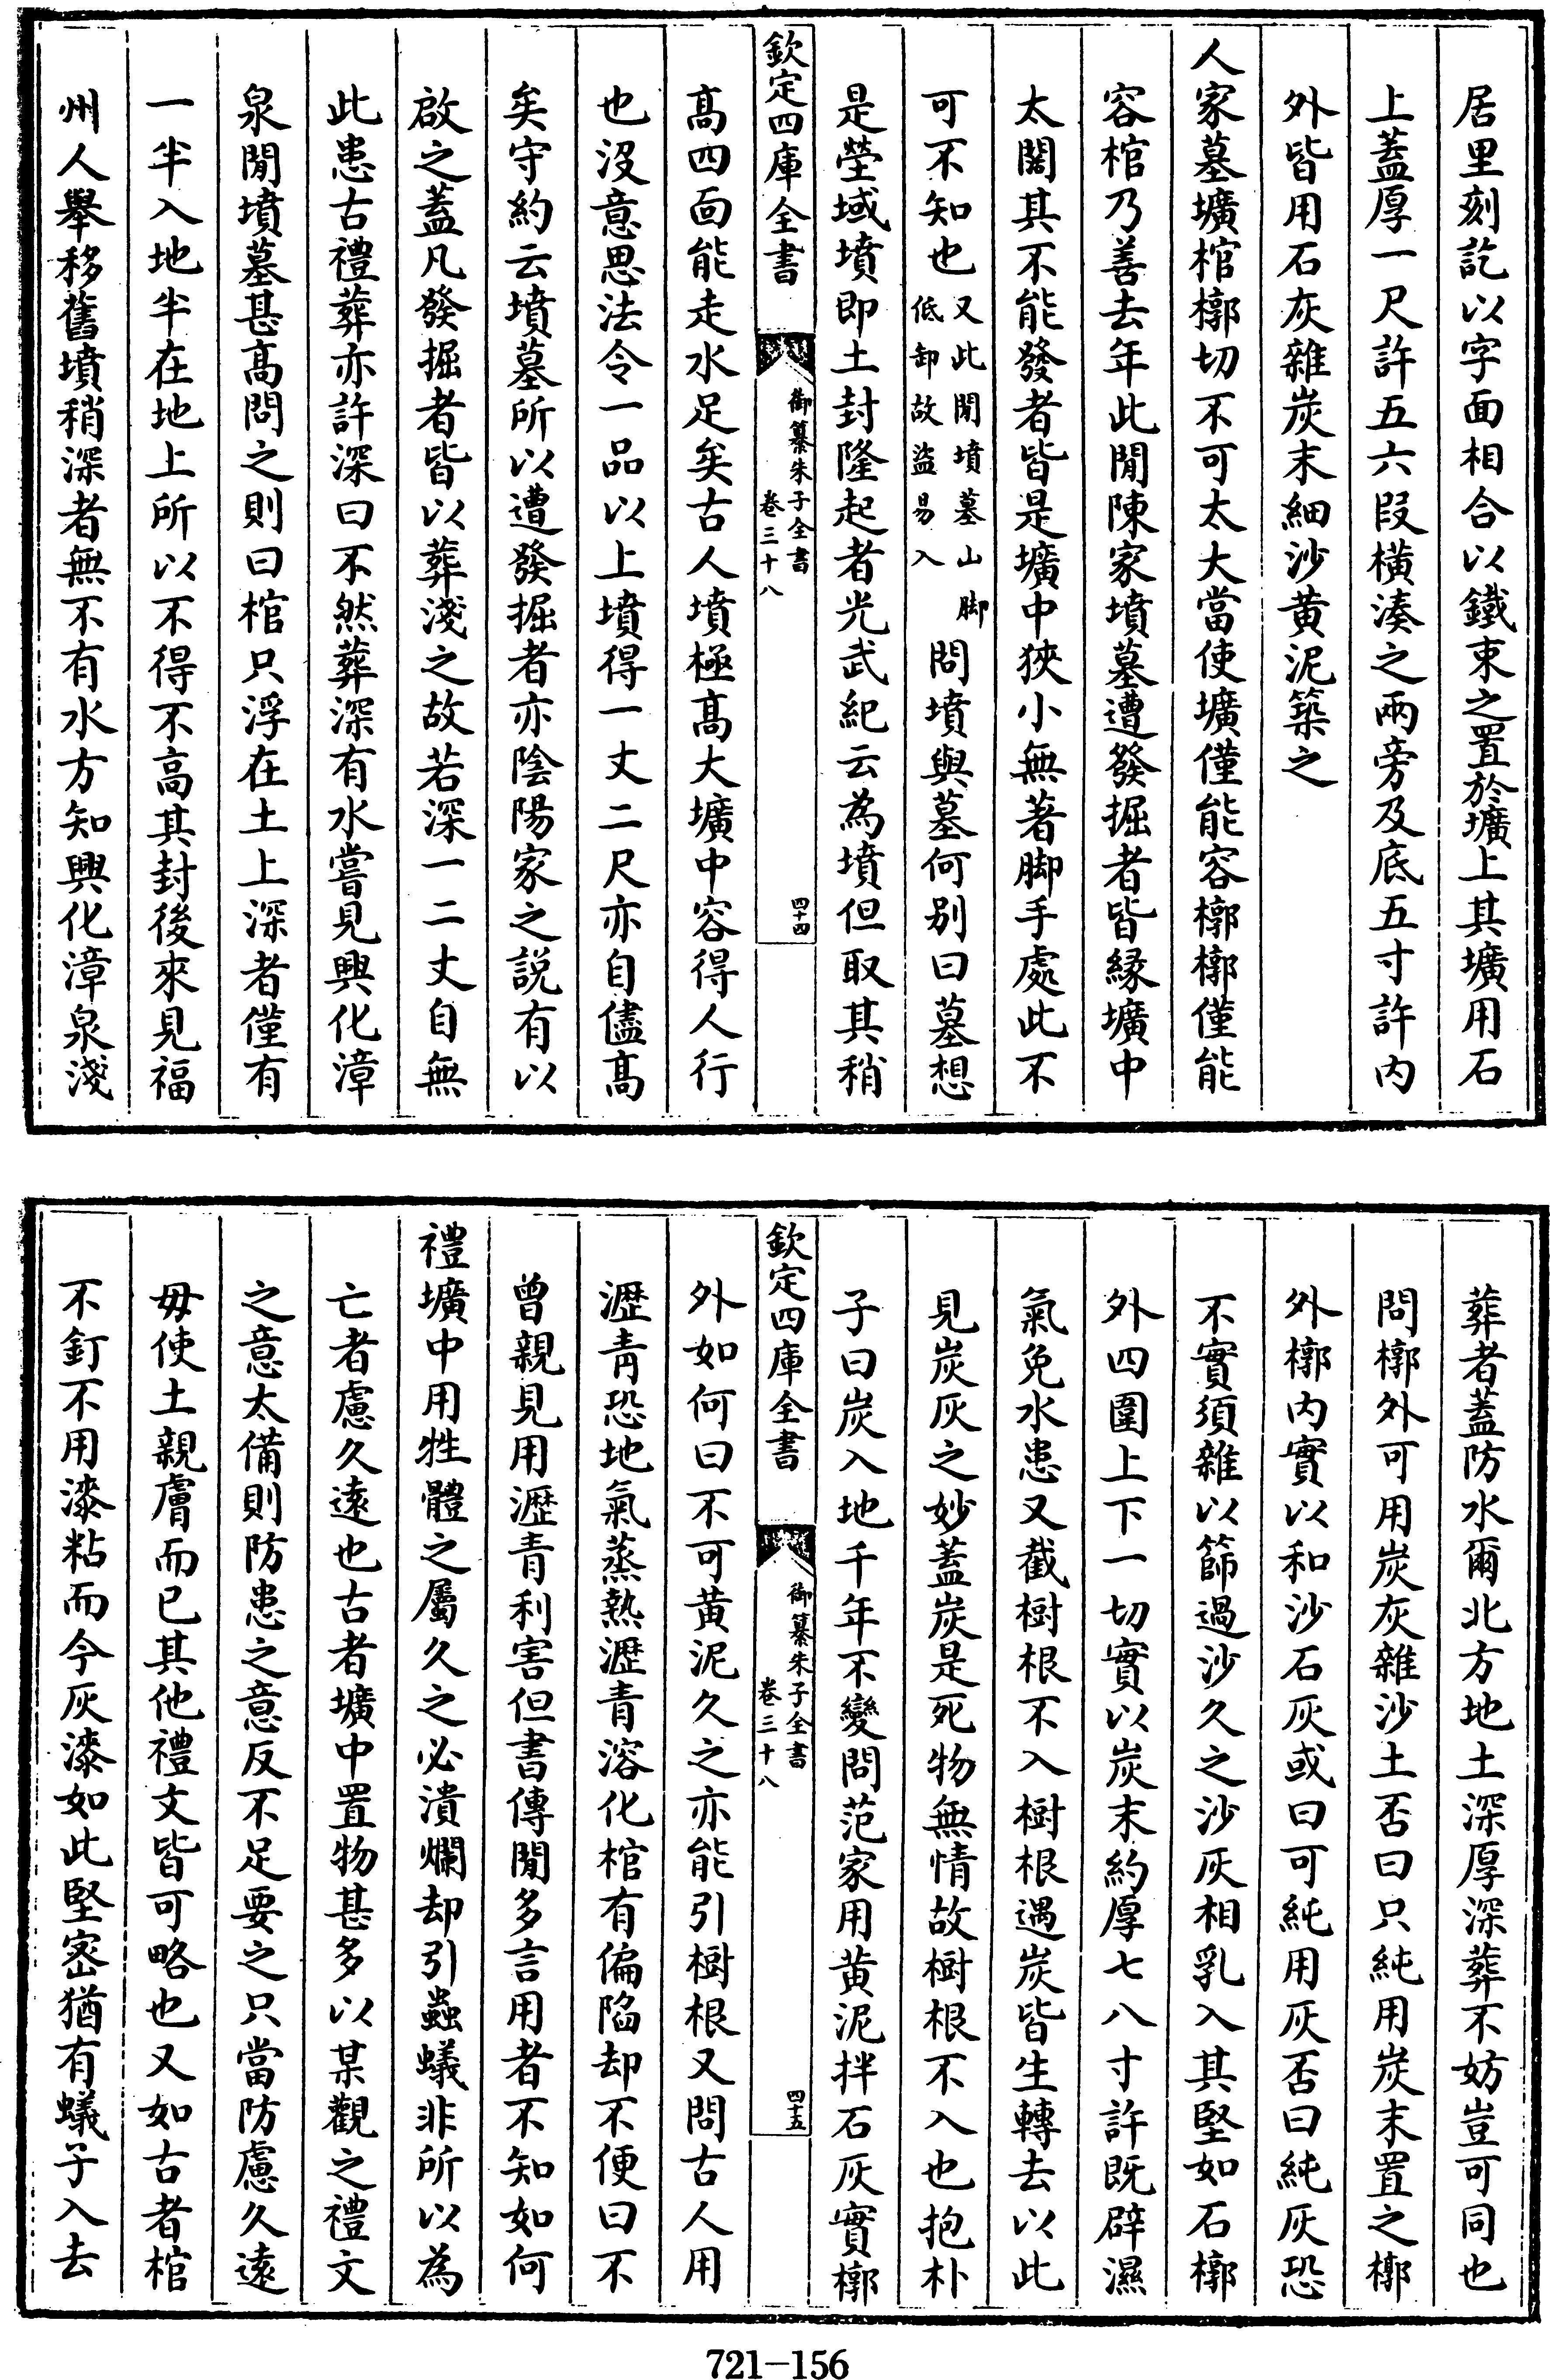 居里刻訖以字面相合以鐵束之置於壙上其壙用石
上蓋厚一尺許五六段橫湊之兩旁及底五寸許内
外皆用石灰雜炭末細沙黄泥築之
人家墓壙棺槨切不可太大當使壙僅能容槨槨僅能
容棺乃善去年此閒陳家墳墓遭發掘者皆緣壙中
太闊其不能發者皆是壙中狹小無著脚手處此不
可不知也又此閒墳墓山脚低卸故盜易入問墳與墓何别曰墓想
是塋域墳即土封隆起者光武紀云為墳但取其稍
欽定四庫全書 御纂朱子全書 卷三十八 四十四
髙四面能走水足矣古人墳極髙大壙中容得人行
也沒意思法令一品以上墳得一丈二尺亦自儘髙
矣守約云墳墓所以遭發掘者亦陰陽家之說有以
啟之蓋凡發掘者皆以葬淺之故若深一二丈自無
此患古禮葬亦許深曰不然葬深有水嘗見興化漳
泉閒墳墓甚髙問之則曰棺只浮在土上深者僅有
一半入地半在地上所以不得不高其封後來見福
州人舉移舊墳稍深者無不有水方知興化漳泉淺
葬者蓋防水爾北方地土深厚深葬不妨豈可同也
問槨外可用炭灰雜沙土否曰只純用炭末置之槨
外槨内實以和沙石灰或曰可純用灰否曰純灰恐
不實須雜以篩過沙久之沙灰相乳入其堅如石槨
外四圍上下一切實以炭末約厚七八寸許既辟濕
氣免水患又截樹根不入樹根遇炭皆生轉去以此
見炭灰之妙蓋炭是死物無情故樹根不入也抱朴
子曰炭入地千年不變問范家用黄泥拌石灰實槨
欽定四庫全書 御纂朱子全書 卷三十八 四十五
外如何曰不可黄泥久之亦能引樹根又問古人用
瀝青恐地氣蒸熱瀝青溶化棺有偏陷却不便曰不
曾親見用瀝青利害但書傳閒多言用者不知如何
禮壙中用牲體之屬久之必潰爛却引蟲蟻非所以為
亡者慮久遠也古者壙中置物甚多以某觀之禮文
之意太備則防患之意反不足要之只當防慮久遠
毋使土親膚而已其他禮文皆可略也又如古者棺
不釘不用漆粘而今灰漆如此堅密猶有蟻子入去
721-156